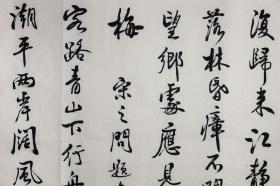 復歸來江靜
落林昏瘴不
望鄉處應見
梅 宋之問題
客路青山下行舟
潮平兩岸闊風